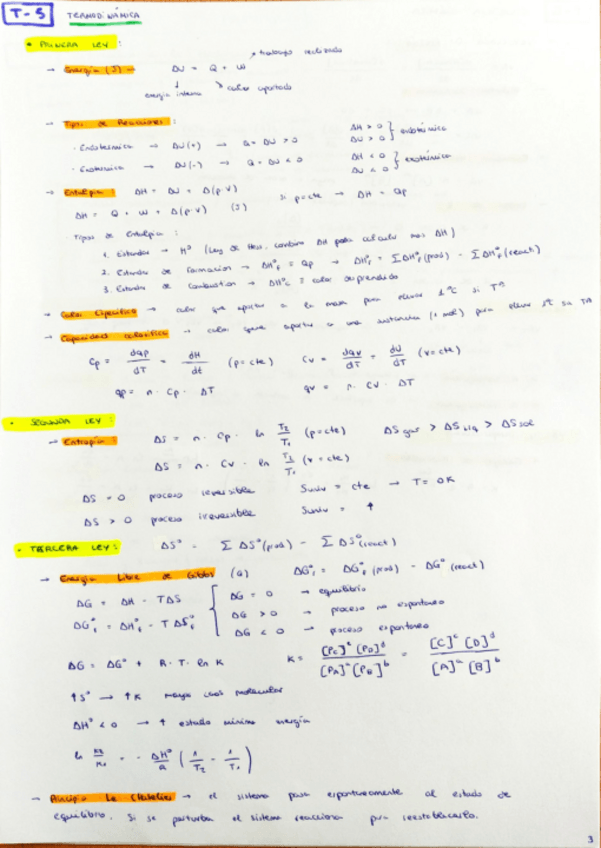 T-5 TERMODINÁMICA
• PRIMERA LEY:
→ Energía (J) → ΔU = Q + W → trabajo realizado
energía interna calor aportado
→ Tipos de Reacciones:
· Endotérmica → ΔU(+) → Q = ΔU > 0 ΔH > 0 ΔU > 0 } endotérmica
· Exotérmica → ΔU(-) → Q = ΔU < 0 ΔH < 0 ΔU < 0 } exotérmica
→ Entalpía: ΔH = ΔU + Δ(p·V) Si p=cte → ΔH = Qp
ΔH = Q + W + Δ(p·V) (J)
· Tipos de Entalpía:
1. Estándar → Hº (Ley de Hess, combino ΔH para calcular más ΔH)
2. Estándar de Formación → ΔHºf = Qp → ΔHºf = ΣΔHºf(prod) - ΣΔHºf(react)
3. Estándar de Combustión → ΔHºc = calor desprendido
→ Calor Específico → calor que aportar a la masa para elevar 1ºC si Tª
→ Capacidad calorífica → calor que aportar a una sustancia (1 mol) para elevar 1ºC su Tª
Cp = dqp/dT = dH/dt (p=cte) Cv = dqv/dT = dU/dT (v=cte)
qp = n · Cp · ΔT qv = n · CV · ΔT
• SEGUNDA LEY:
→ Entropía: ΔS = n · Cp · ln T2/T1 (p=cte) ΔS gas > ΔS liq > ΔS sol
ΔS = n · Cv · ln T2/T1 (v=cte)
ΔS = 0 proceso reversible Suniv = cte → T = 0K
ΔS > 0 proceso irreversible Suniv = ↑
• TERCERA LEY: ΔSº = ΣΔSº(prod) - ΣΔSº(react)
→ Energía Libre de Gibbs (G) ΔGºf = ΔGºf (prod) - ΔGº (react)
ΔG = ΔH - TΔS ΔG = 0 → equilibrio
ΔGºf = ΔHºf - TΔSºf ΔG > 0 → proceso no espontáneo
ΔG < 0 → proceso espontáneo
ΔG = ΔGº + R · T · ln K K = [PC]^c [PD]^d / [PA]^a [PB]^b = [C]^c [D]^d / [A]^a [B]^b
↑Sº → ↑K mayor caos molecular
ΔHº < 0 → ↑ estado mínimo energía
ln K2/K1 = - ΔHº/R (1/T2 - 1/T1)
→ Principio Le Chatelier → el sistema pasa espontáneamente al estado de
equilibrio. Si se perturba el sistema reacciona para reestablecerlo.
3